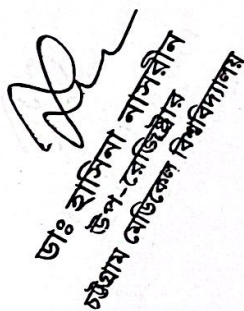 ডাঃ হাসিনা নাসরীন
উপ-রেজিষ্ট্রার
চট্টগ্রাম মেডিকেল বিশ্ববিদ্যালয়